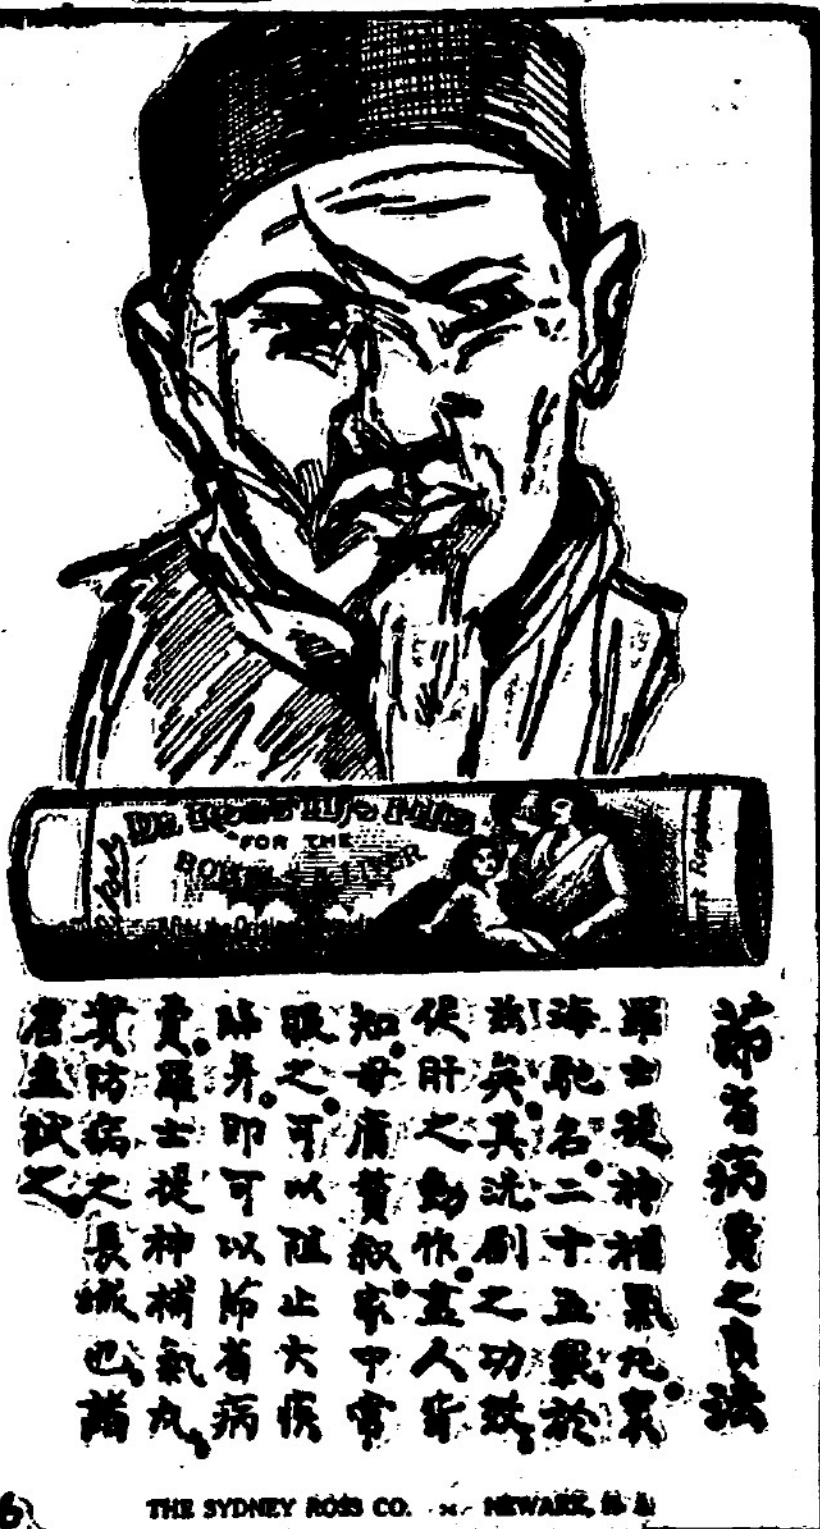 Dr. Ross' Life Pills
"FOR THE
BOWELS & LIVER
節省病費之良法
羅士提神補氣丸。寰
海馳名。二十五載於
茲矣。其洗刷之功效。
促肝之動作。盡人皆
知。毋庸贅叙。家中常
服之。可以阻止大疾
即可以節省病
費。羅士提神補氣丸。
實防病之長城也。諸
君盍試之。
THE SYDNEY ROSS CO. NEWARK, N. J.